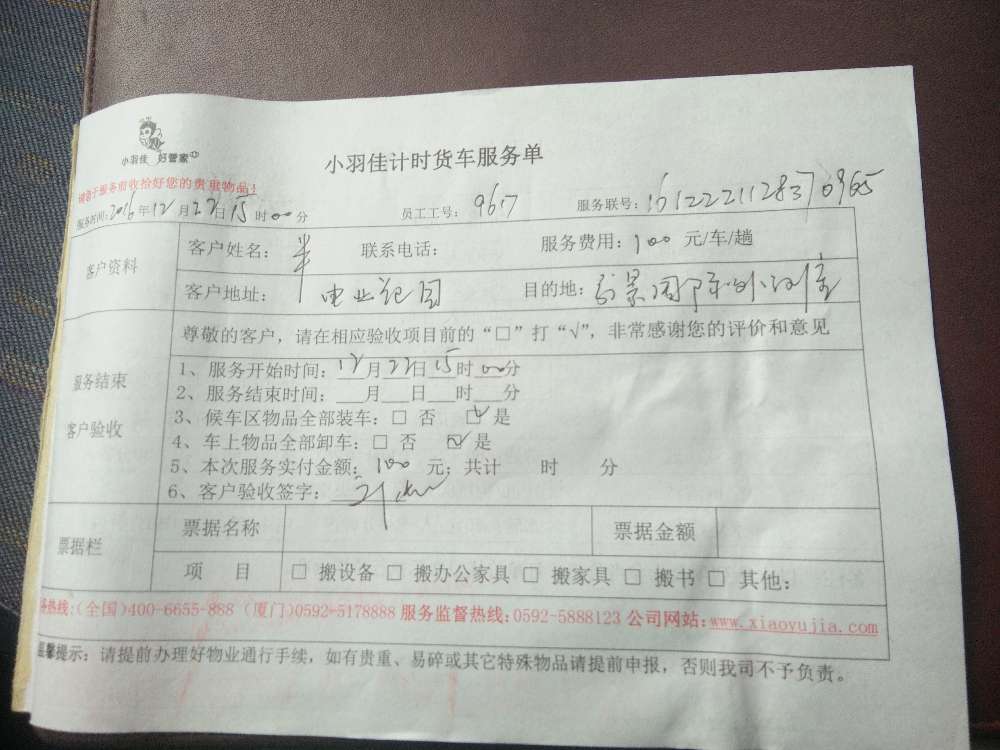 小羽佳 好管家
小羽佳计时货车服务单
服务前收拾好您的贵重物品！
服务时间：2016年12月22日15时00分 员工工号：9617 服务联号：1612221128376965
客户资料
客户姓名： 联系电话： 服务费用：100元/车/趟
客户地址： 目的地：
服务结束
客户验收
尊敬的客户，请在相应验收项目前的“□”打“√”，非常感谢您的评价和意见
1、服务开始时间：12月22日15时00分
2、服务结束时间：___月___日___时___分
3、候车区物品全部装车：□ 否 ☑ 是
4、车上物品全部卸车：□ 否 ☑ 是
5、本次服务实付金额：100 元；共计 时 分
6、客户验收签字：
票据栏
票据名称 票据金额
项 目 □ 搬设备 □ 搬办公家具 □ 搬家具 □ 搬书 □ 其他：
务热线：（全国）400-6655-888（厦门）0592-5178888 服务监督热线：0592-5888123 公司网站：www.xiaoyujia.com
温馨提示：请提前办理好物业通行手续，如有贵重、易碎或其它特殊物品请提前申报，否则我司不予负责。